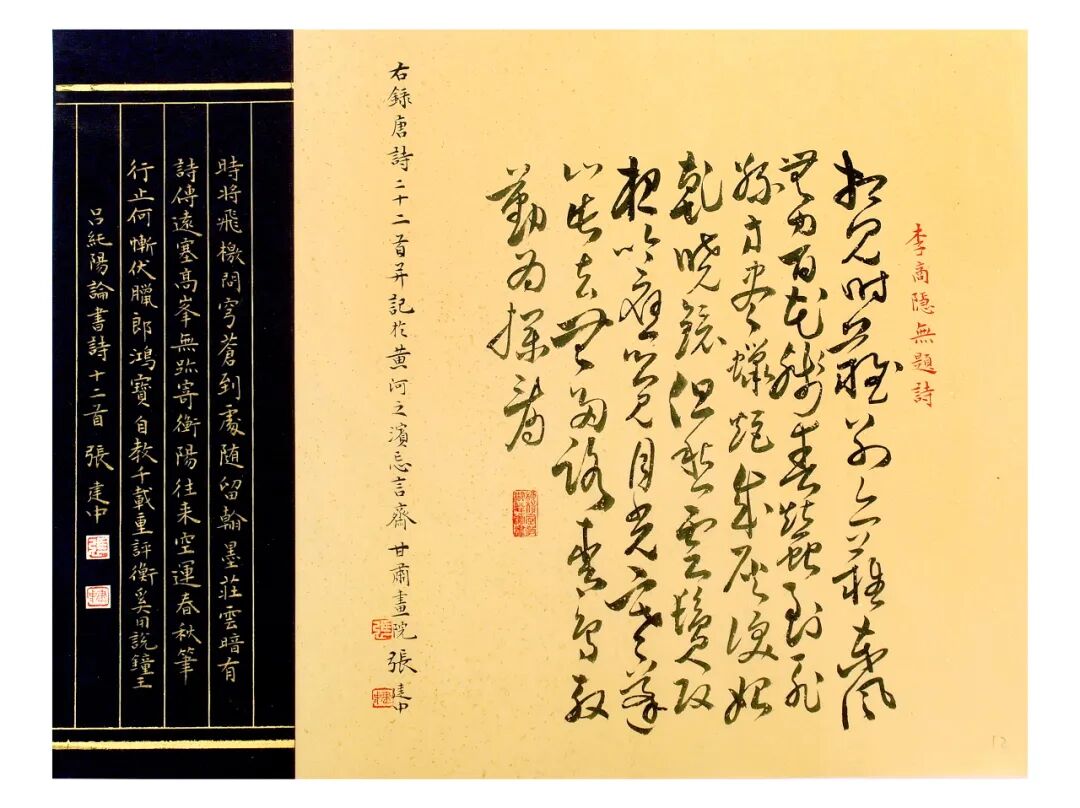 李商隱無題詩
相見時難別亦難東風
無力百花殘春蠶到死
絲方盡蠟炬成灰淚始
乾曉鏡但愁雲鬢改
夜吟應覺月光寒蓬
山此去無多路青鳥殷
勤為探看
右錄唐詩二十二首并記於黃河之濱忘言齋甘肅畫院張建中
時將飛檄問穹蒼到處随留翰墨莊雲暗有
詩傳遠塞高峯無跡寄衡陽往来空運春秋筆
行止何慚伏臘郎鴻寶自教千載重評衡奚用說鐘王
呂純陽論書詩十二首張建中